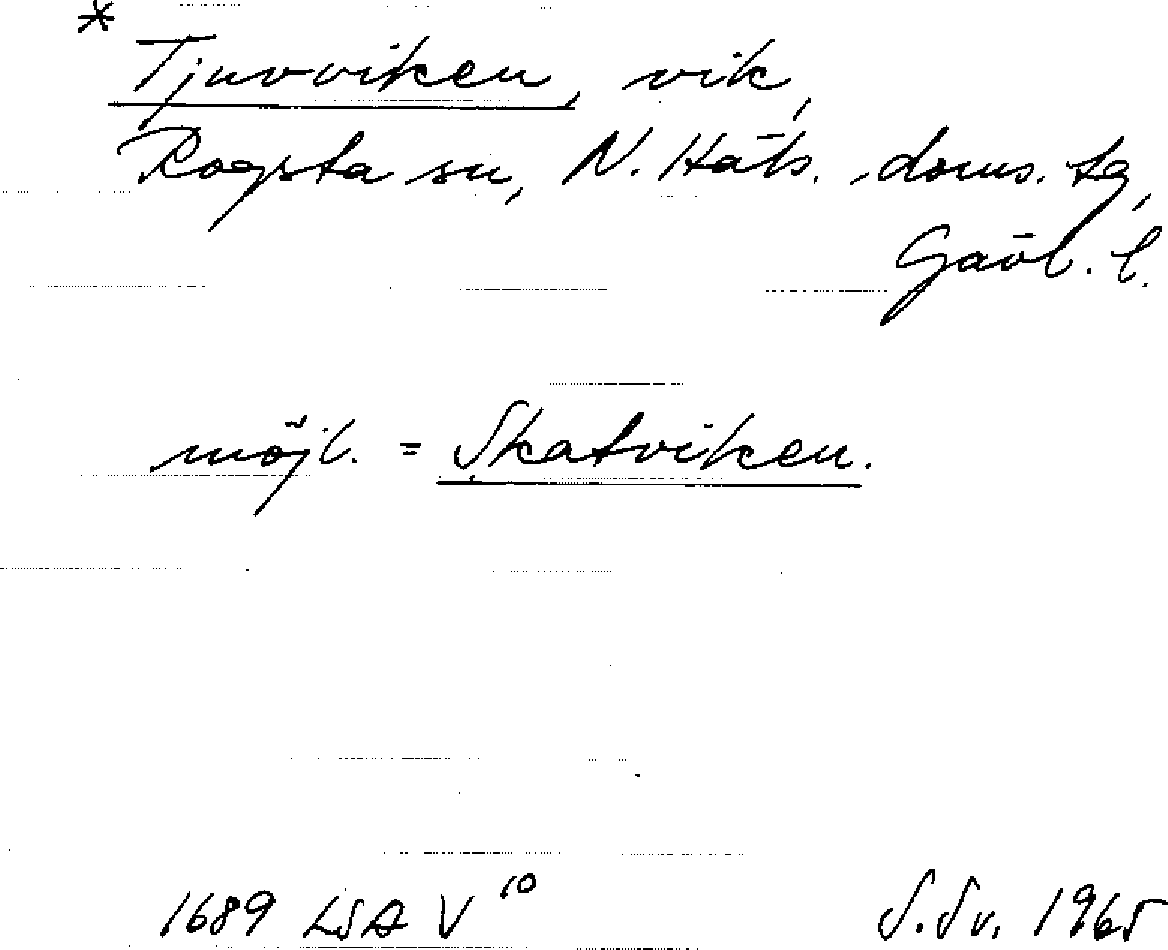 * Tjuvviken, vik,
Rogsta sn, N. Häls. doms. tg,
Gävl. l.
möjl. = Skatviken.
1689 LSA V¹⁰ S. Sv. 1965